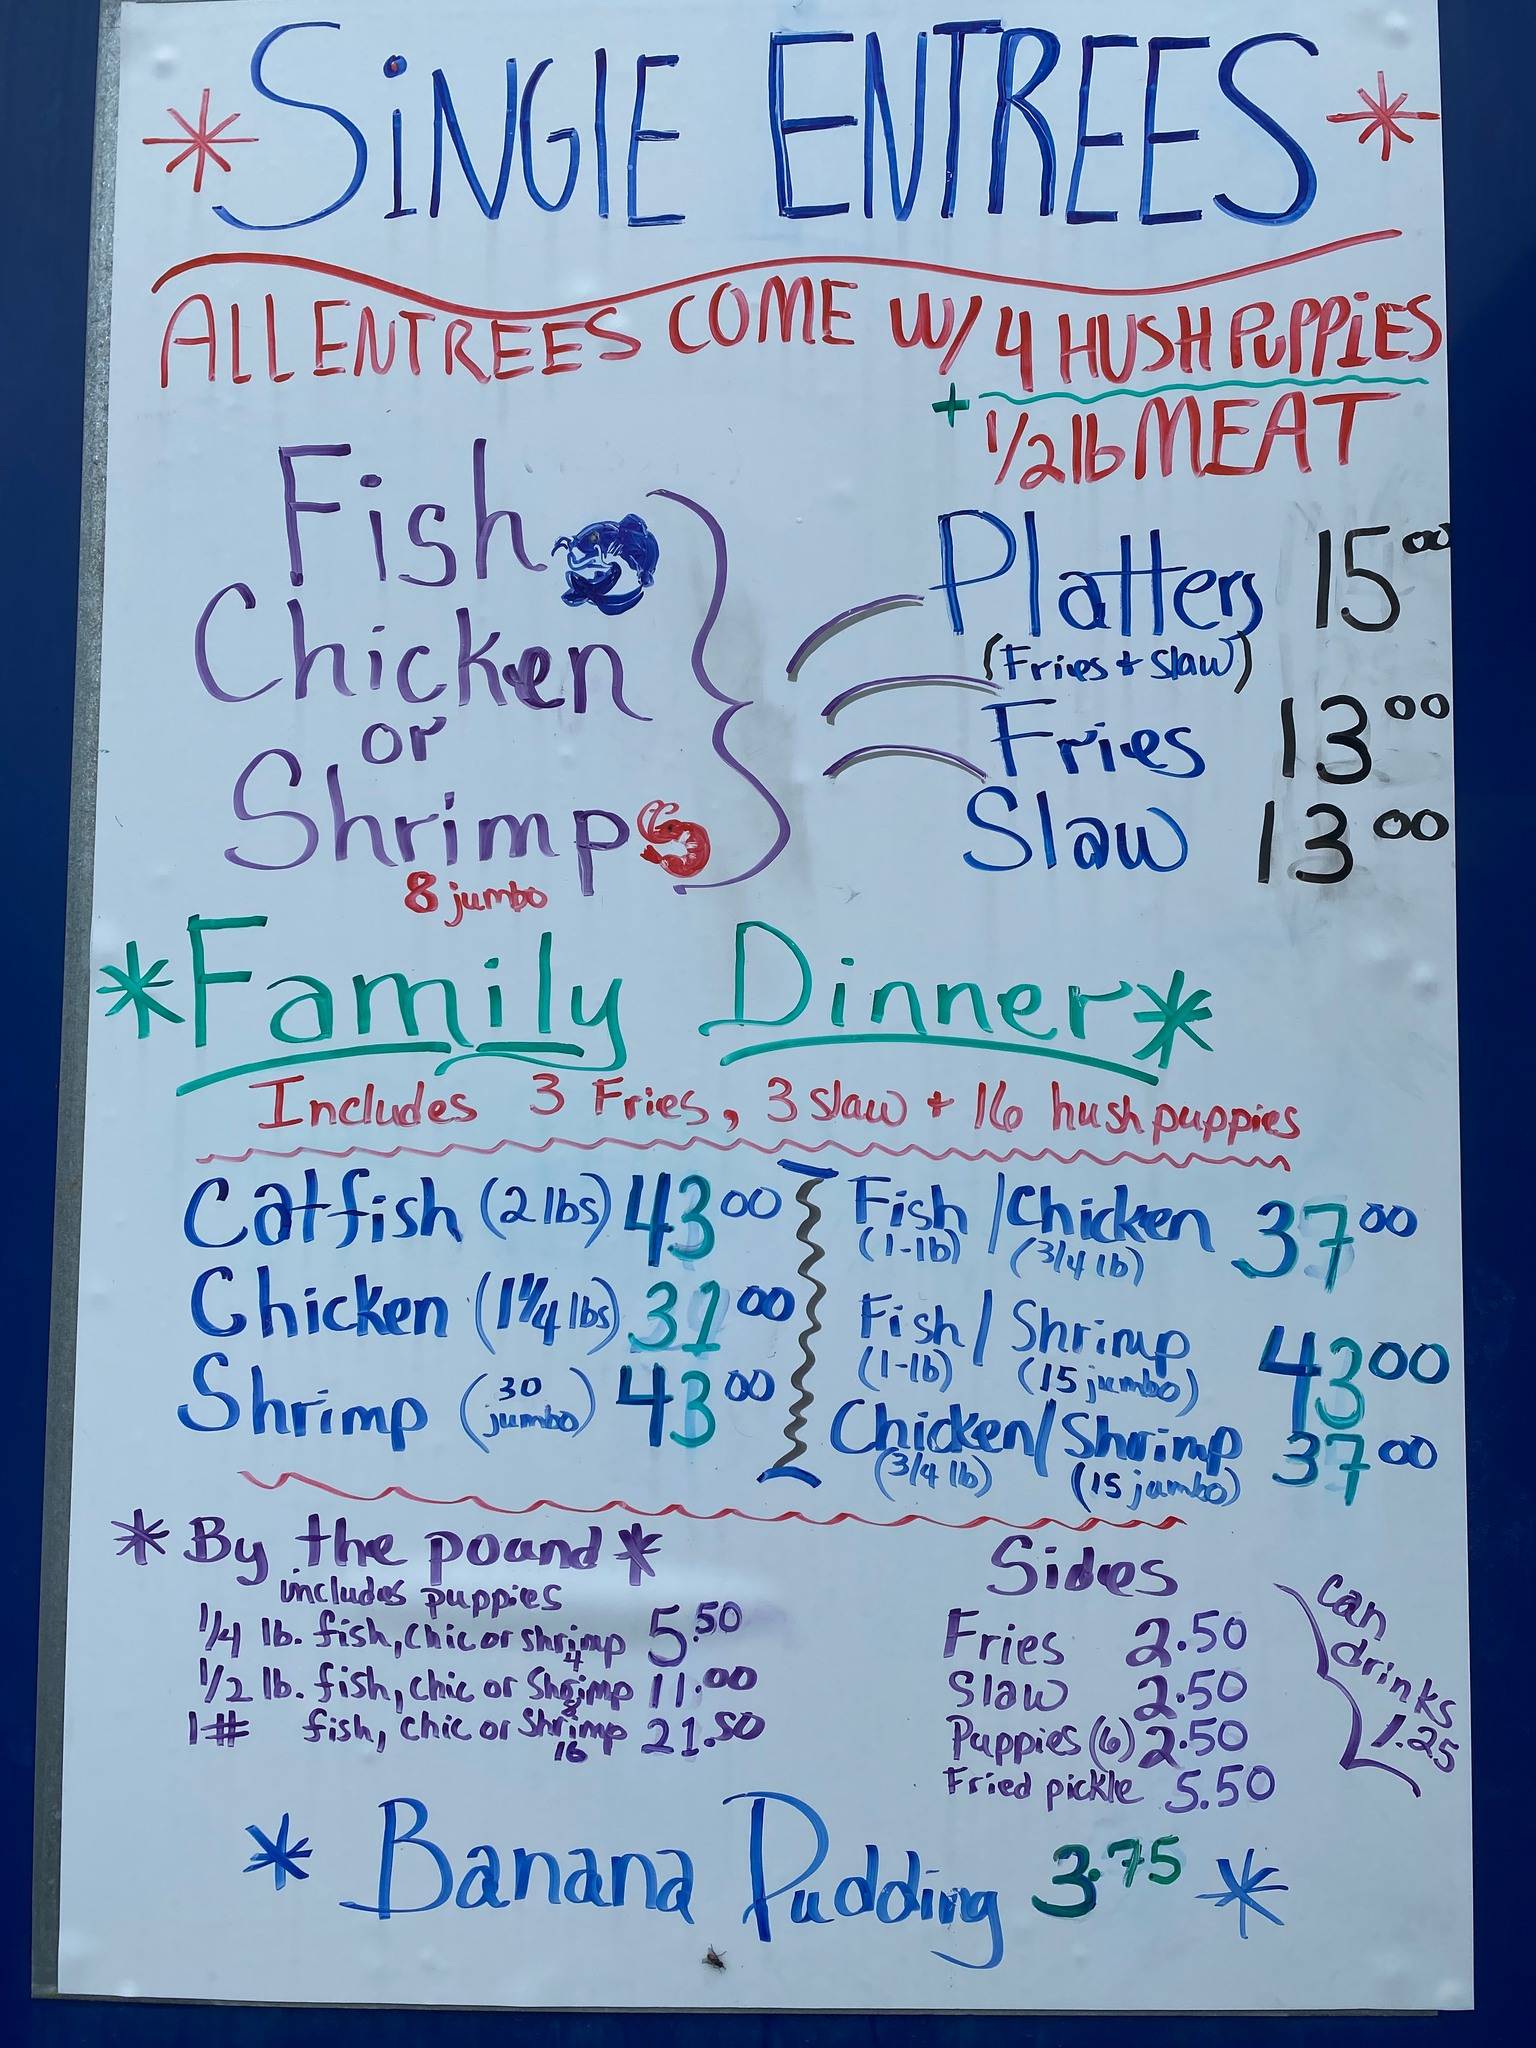 * SiNGlE ENTREES *
All ENTREES COME W/ 4 HUSH PUPPiES
+ 1/2 lb MEAT
Fish
Chicken
or
Shrimp
8 jumbo
Platters 15 00
(Fries + Slaw)
Fries 13 00
Slaw 13 00
* Family Dinner *
Includes 3 Fries, 3 slaw + 16 hush puppies
Catfish (2 lbs) 43 00
Chicken (1 1/4 lbs) 31 00
Shrimp (30 jumbo) 43 00
Fish / Chicken 37 00
(1-lb) (3/4 lb)
Fish / Shrimp 43 00
(1-lb) (15 jumbo)
Chicken / Shrimp 37 00
(3/4 lb) (15 jumbo)
* By the pound *
includes puppies
1/4 lb. fish, chic or shrimp 5.50
4
1/2 lb. fish, chic or Shrimp 11.00
8
1# fish, chic or Shrimp 21.50
16
Sides
Fries 2.50
Slaw 2.50
Puppies (6) 2.50
Fried pickle 5.50
can
drinks
1.25
* Banana Pudding 3.75 *